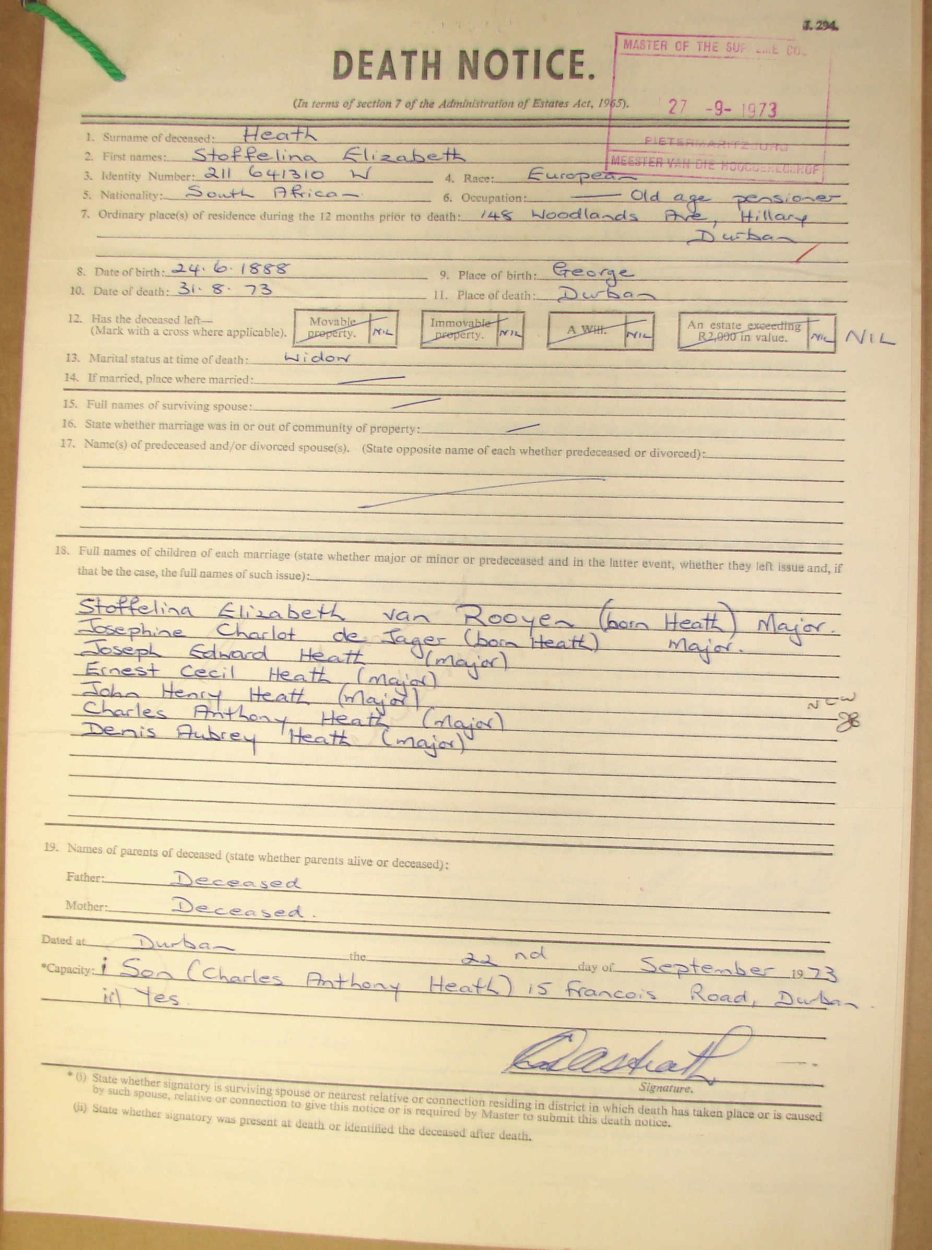 J. 294.
MASTER OF THE SUPREME CO
DEATH NOTICE.
(In terms of section 7 of the Administration of Estates Act, 1965).
27 -9- 1973
PIETERMARITZBURG
MEESTER VAN DIE HOOGGEREGSHOF
1. Surname of deceased: Heath
2. First names: Stoffelina Elizabeth
3. Identity Number: 211 641310 W 4. Race: European
5. Nationality: South African 6. Occupation: Old age pensioner
7. Ordinary place(s) of residence during the 12 months prior to death: 148 Woodlands Ave, Hillary
Durban
8. Date of birth: 24.6.1888 9. Place of birth: George
10. Date of death: 31.8.73 11. Place of death: Durban
12. Has the deceased left—
(Mark with a cross where applicable). Movable property. NIL Immovable property. NIL A Will. NIL An estate exceeding R2,000 in value. NIL NIL
13. Marital status at time of death: Widow
14. If married, place where married:
15. Full names of surviving spouse:
16. State whether marriage was in or out of community of property:
17. Name(s) of predeceased and/or divorced spouse(s). (State opposite name of each whether predeceased or divorced):
18. Full names of children of each marriage (state whether major or minor or predeceased and in the latter event, whether they left issue and, if
that be the case, the full names of such issue):
Stoffelina Elizabeth van Rooyen (born Heath) Major.
Josephine Charlot de Jager (born Heath) Major.
Joseph Edward Heath (Major)
Ernest Cecil Heath (Major)
John Henry Heath (Major)
Charles Anthony Heath (Major)
Denis Aubrey Heath (Major)
19. Names of parents of deceased (state whether parents alive or deceased):
Father: Deceased
Mother: Deceased.
Dated at Durban the 22nd day of September 1973
*Capacity: i Son (Charles Anthony Heath) 15 Francois Road, Durban
ii) Yes.
Signature.
* (i) State whether signatory is surviving spouse or nearest relative or connection residing in district in which death has taken place or is caused
by such spouse, relative or connection to give this notice or is required by Master to submit this death notice.
(ii) State whether signatory was present at death or identified the deceased after death.